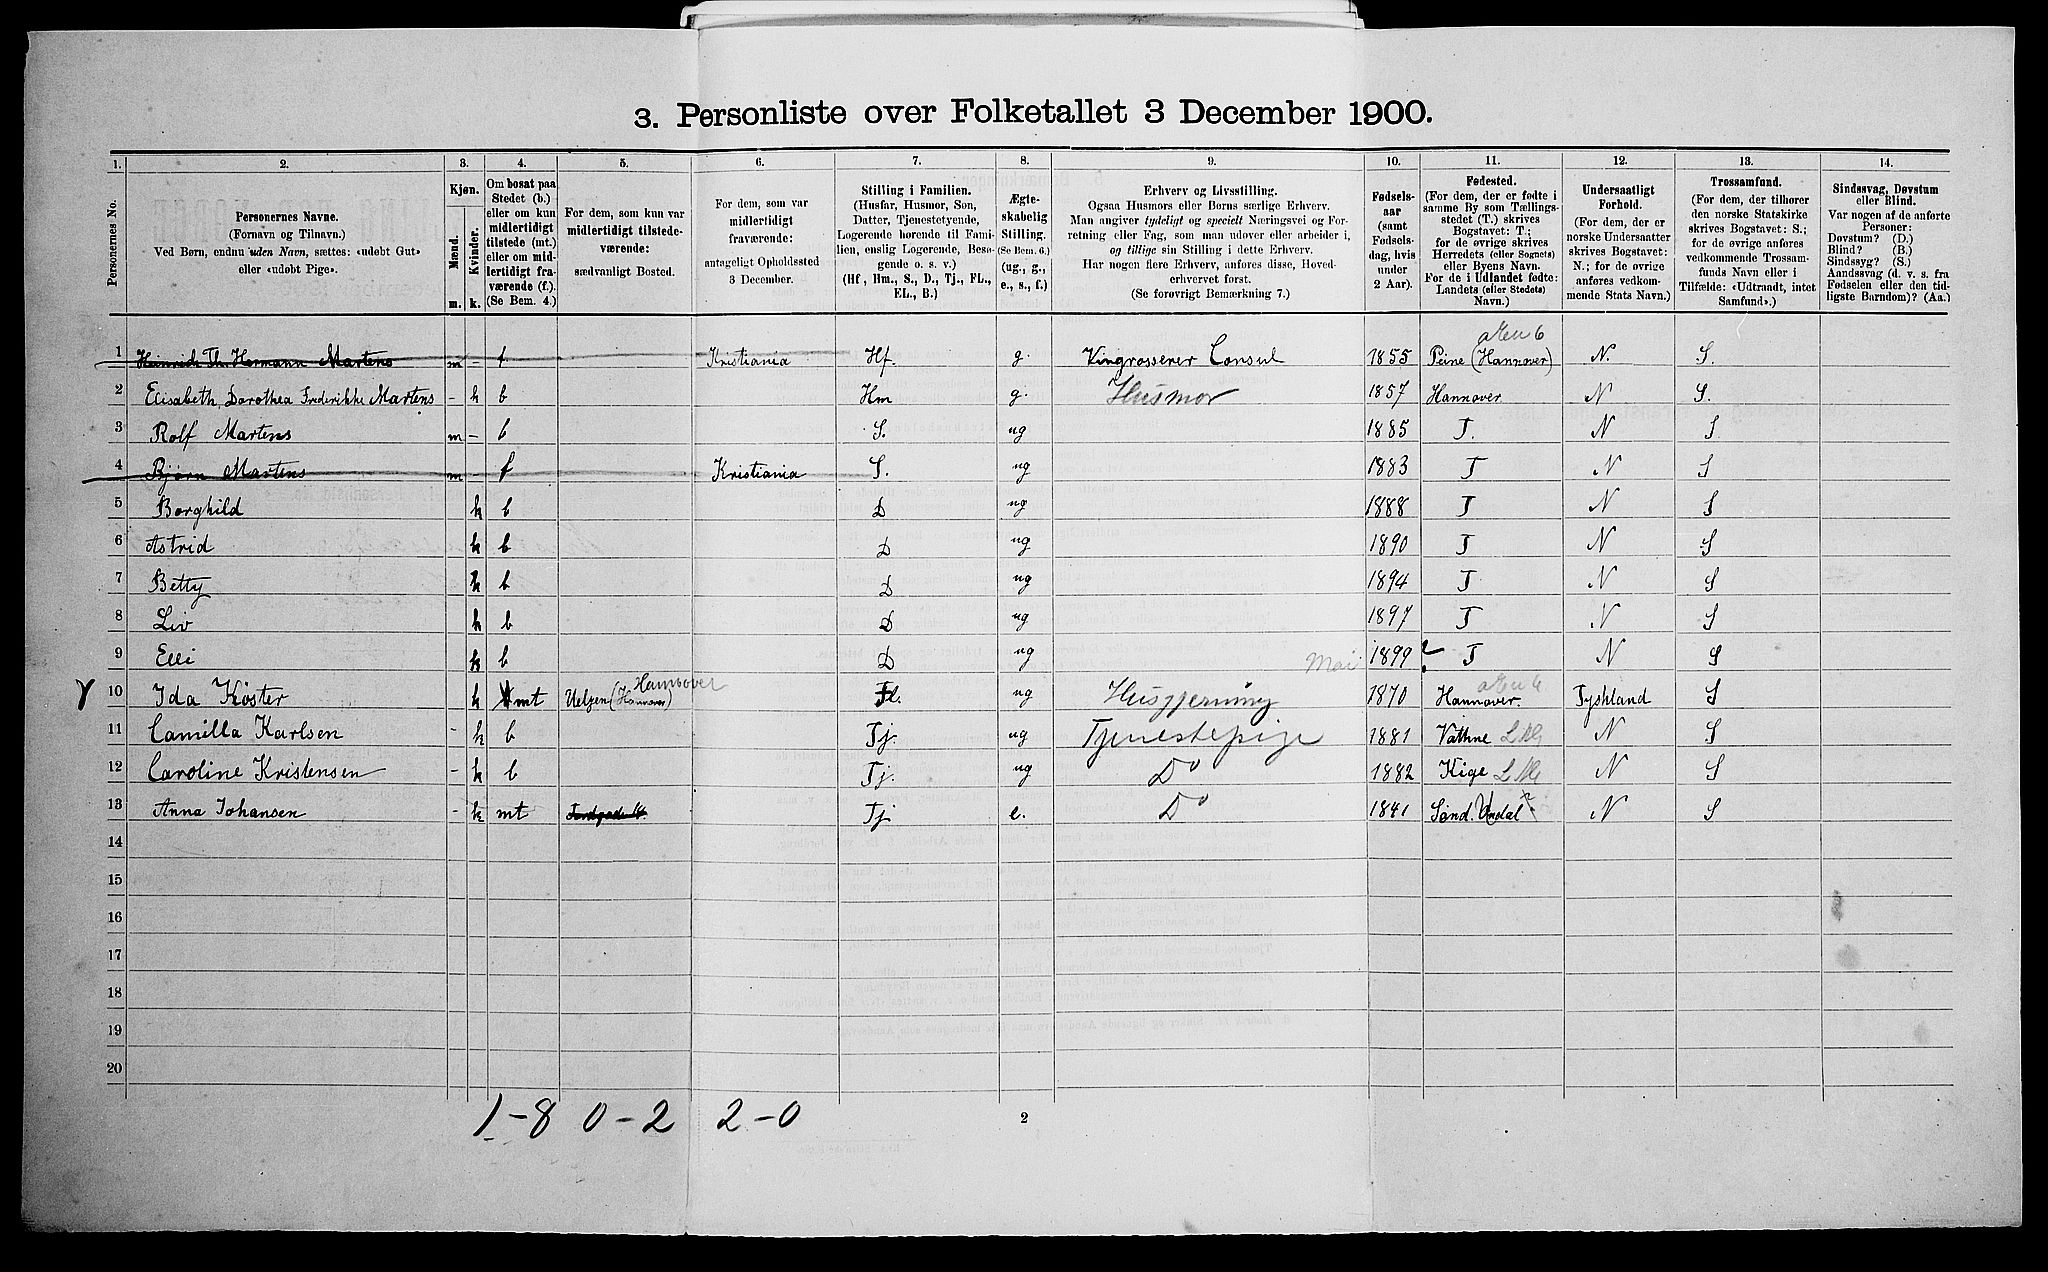 3. Personliste over Folketallet 3 December 1900.
1. 2. 3. 4. 5. 6. 7. 8. 9. 10. 11. 12. 13. 14.
Personernes No.
Personernes Navne.
(Fornavn og Tilnavn.)
Ved Børn, endnu uden Navn, sættes: «udøbt Gut»
eller «udøbt Pige».
Kjøn.
Mænd.
Kvinder.
m. k.
Om bosat paa
Stedet (b.)
eller om kun
midlertidigt
tilstede (mt.)
eller om mid-
lertidigt fra-
værende (f.)
(Se Bem. 4.)
For dem, som kun var
midlertidigt tilstede-
værende:
sædvanligt Bosted.
For dem, som var
midlertidigt
fraværende:
antageligt Opholdssted
3 December.
Stilling i Familien.
(Husfar, Husmor, Søn,
Datter, Tjenestetyende,
Logerende hørende til Fami-
lien, enslig Logerende, Besø-
gende o. s. v.)
(Hf, Hm., S., D., Tj., FL.,
EL., B.)
Ægte-
skabelig
Stilling.
(Se Bem. 6.)
(ug., g.,
e., s., f.)
Erhverv og Livsstilling.
Ogsaa Husmors eller Børns særlige Erhverv.
Man angiver tydeligt og specielt Næringsvei og For-
retning eller Fag, som man udover eller arbeider i,
og tillige sin Stilling i dette Erhverv.
Har nogen flere Erhverv, anføres disse, Hoved-
erhvervet først.
(Se forøvrigt Bemærkning 7.)
Fødsels-
aar
(samt
Fødsels-
dag, hvis
under
2 Aar).
Fødested.
(For dem, der er fødte i
samme By som Tællings-
stedet (T.) skrives
Bogstavet: T.;
for de øvrige skrives
Herredets (eller Sognets)
eller Byens Navn.
For de i Udlandet fødte:
Landets (eller Stedets)
Navn.)
Undersaatligt
Forhold.
(For dem, der er
norske Undersaatter
skrives Bogstavet:
N.; for de øvrige
anføres vedkom-
mende Stats Navn.)
Trossamfund.
(For dem, der tilhører
den norske Statskirke
skrives Bogstavet: S.;
for de øvrige anføres
vedkommende Trossam-
funds Navn eller i
Tilfælde: «Udtraadt, intet
Samfund».)
Sindssvag, Døvstum
eller Blind.
Var nogen af de anførte
Personer:
Døvstum? (D.)
Blind? (B.)
Sindssyg? (S.)
Aandssvag (d. v. s. fra
Fødselen eller den tid-
ligste Barndom)? (Aa.)
1 Heinrich Th. Hermann Martens m - f Kristiania Hf. g. Vingrosserer Consul 1855 Peine (Hannover) N. S.
2 Elisabeth, Dorothea Frederikke Martens - k b Hm g. Husmor 1857 Hannover N S.
3 Rolf Martens m - b S. ug 1885 T. N S
4 Bjørn Martens m - f Kristiania S. ug 1883 T N S
5 Borghild k b D ug 1888 T N S
6 Astrid k b D ug 1890 T N S
7 Betty k b D ug 1894 T N S
8 Liv k b D ug 1897 T N S
9 Elli k b D ug Mai 1899 T N S
10 Ida Köster k mt Uelzen (Hannover) Hannover Fl. ug Husgjerning 1870 Hannover. Tyskland S
11 Camilla Karlsen - k b Tj. ug Tjenestepige 1881 Vathne N S
12 Caroline Kristensen - k b Tj. ug Do 1882 Kige N S
13 Anna Johansen - k mt Tj e. Do 1841 Sønd. Undal N S
14
15
16
17
18
19
20
1-8 0-2 2-0
2